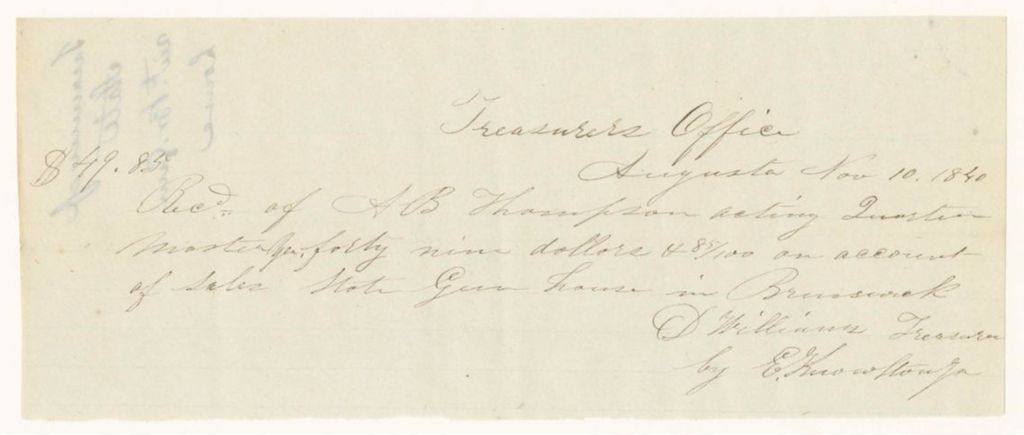 Treasurers Office
$49.85
Augusta Nov 10. 1840
Recd. of A B Thompson acting Quarter
Master Gn. forty nine dollars & 85/100 on account
of Sales State Gun house in Brunswick
D Williams Treasurer
by E. Knowlton Jr